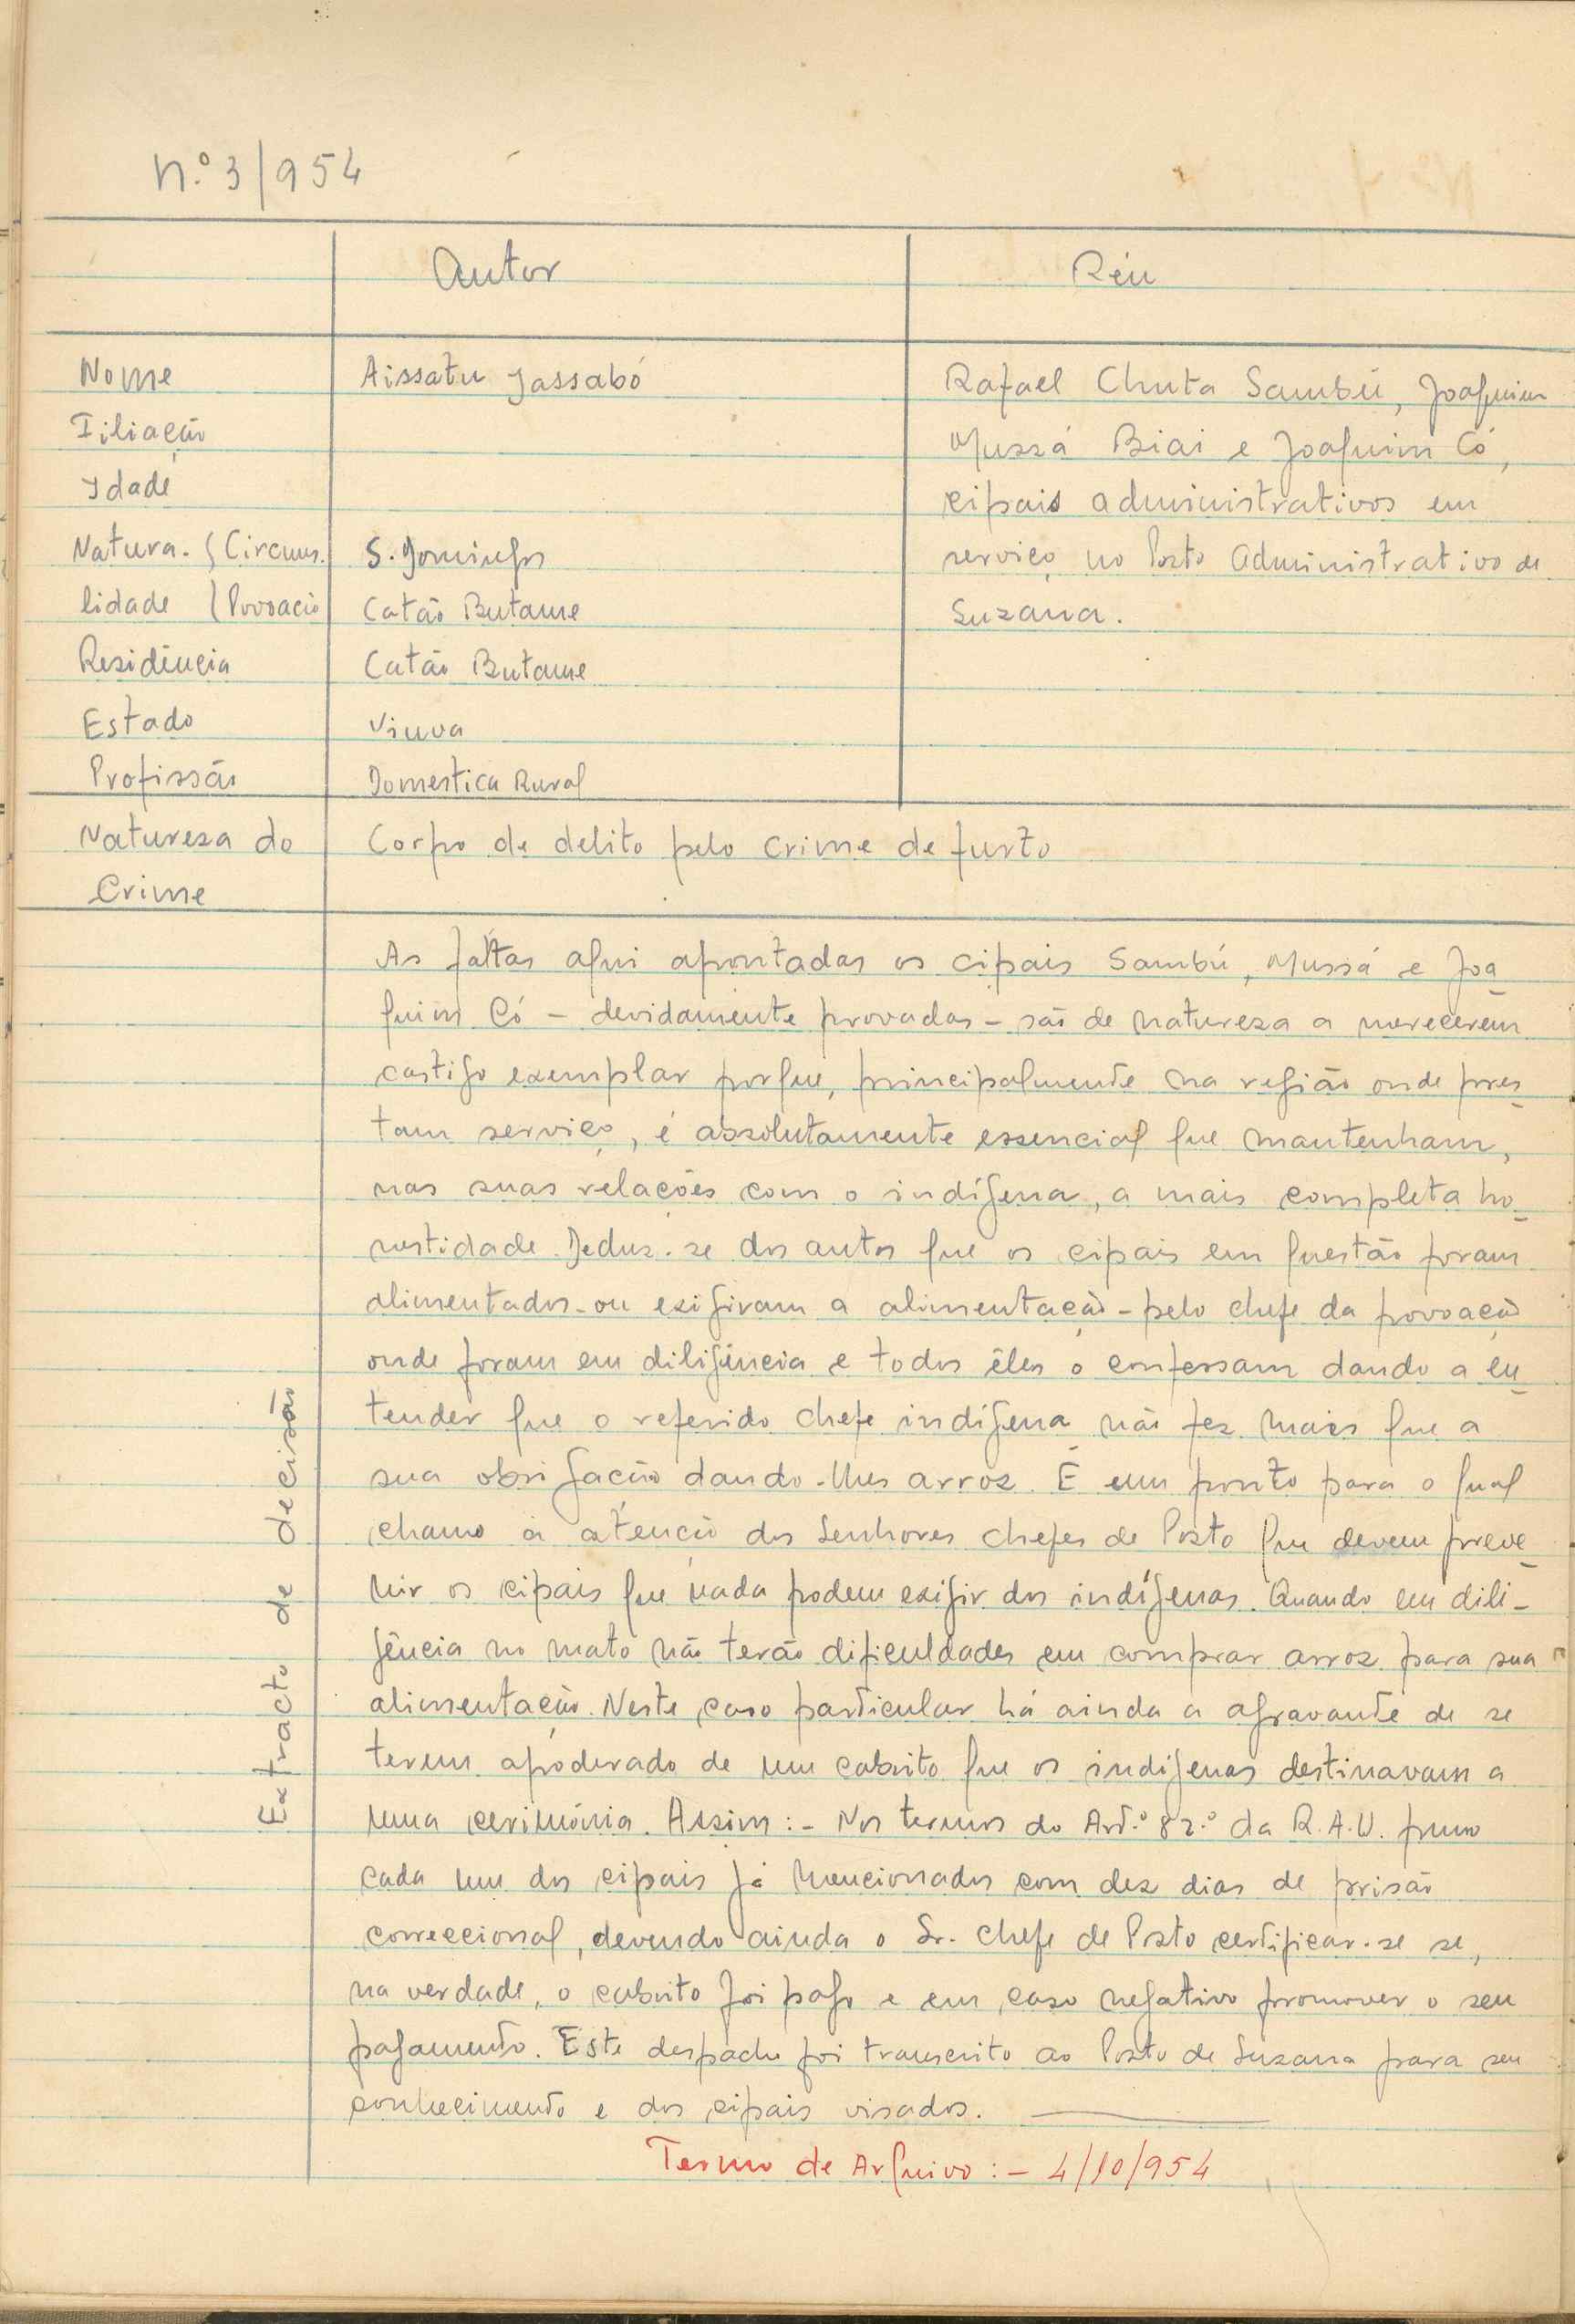 N.º 3/954
Autor Réu
Nome Aissatu Jassabó Rafael Chuta Sambú, Joaquim
Filiação Mussá Biai e Joaquim Có,
Idade cipais administrativos em
Natura. { Circuns. S. Domingos serviço no Posto Administrativo de
lidade { Povoação Catão Butame Suzana.
Residência Catão Butame
Estado Viuva
Profissão Domestica Rural
Natureza do Corpo de delito pelo crime de furto
Crime
Extracto de decisão
As faltas aqui apontadas os cipais Sambú, Mussá e Joa-
quim Có - devidamente provadas - são de natureza a merecerem
castigo exemplar porque, principalmente na região onde pres-
tam serviço, é absolutamente essencial que mantenham,
nas suas relações com o indígena, a mais completa ho-
nestidade. Deduz-se dos autos que os cipais em questão foram
alimentados - ou exigiram a alimentação - pelo chefe da povoação
onde foram em diligência e todos êles o confessam dando a en-
tender que o referido chefe indígena não fez mais que a
sua obrigação dando-lhes arroz. É um ponto para o qual
chamo a atenção dos Senhores chefes de Posto que devem preve-
nir os cipais que nada podem exigir dos indígenas. Quando em dili-
gência no mato não terão dificuldades em comprar arroz para sua
alimentação. Neste caso particular há ainda a agravante de se
terem apoderado de um cabrito que os indígenas destinavam a
uma cerimónia. Assim: - Nos termos do Art.º 82.º da R.A.U. puno
cada um dos cipais já mencionados com dez dias de prisão
correccional, devendo ainda o Sr. Chefe de Posto certificar-se se,
na verdade, o cabrito foi pago e em caso negativo promover o seu
pagamento. Este despacho foi transcrito ao Posto de Suzana para seu
conhecimento e dos cipais visados.
Termo de Arquivo: - 4/10/954